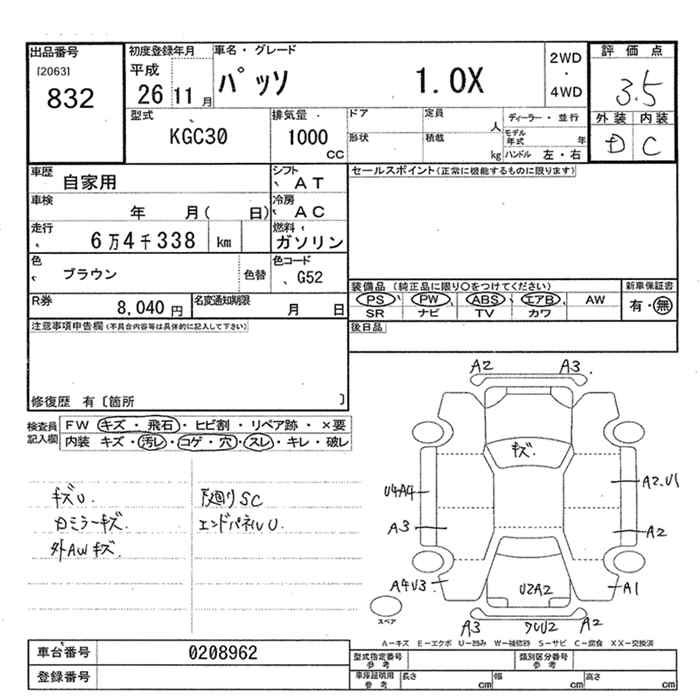 出品番号
[2063]
832
初度登録年月
平成
26 11月
車名・グレード
パッソ 1.0X
2WD
・
4WD
評価点
3.5
外装 内装
D C
型式
KGC30
排気量
1000
CC
ドア
定員
人
形状
積載
kg
ディーラー・並行
モデル年式 年
ハンドル 左・右
車歴
自家用
シフト
AT
車検
年 月( 日)
冷房
AC
走行
6万4千338 km
燃料
ガソリン
色
ブラウン
色替
色コード
G52
R券
8,040円
名変通知期限
月 日
セールスポイント(正常に機能するものに限ります)
装備品 (純正品に限り○をつけてください)
PS PW ABS エアB AW
SR ナビ TV カワ
新車保証書
有・無
後日品
注意事項申告欄(不具合内容等は具体的に記入して下さい)
修復歴 有〔箇所 〕
検査員記入欄
FW キズ・飛石・ヒビ割・リペア跡・×要
内装 キズ・汚レ・コゲ・穴・スレ・キレ・破レ
キズU
カミラーキズ
外AWキズ
下廻りSC
エンドパネルU
A2 A3
キズ
U4A4
A2.U1
A3
A2
A4U3
U2A2
A1
A3
A2
スペア
A-キズ E-エクボ U-凹み W-補修跡 S-サビ C-腐食 XX-交換済
車台番号
0208962
登録番号
型式指定番号
参考
類別区分番号
参考
車庫証明用
参考
長さ cm
幅 cm
高さ cm